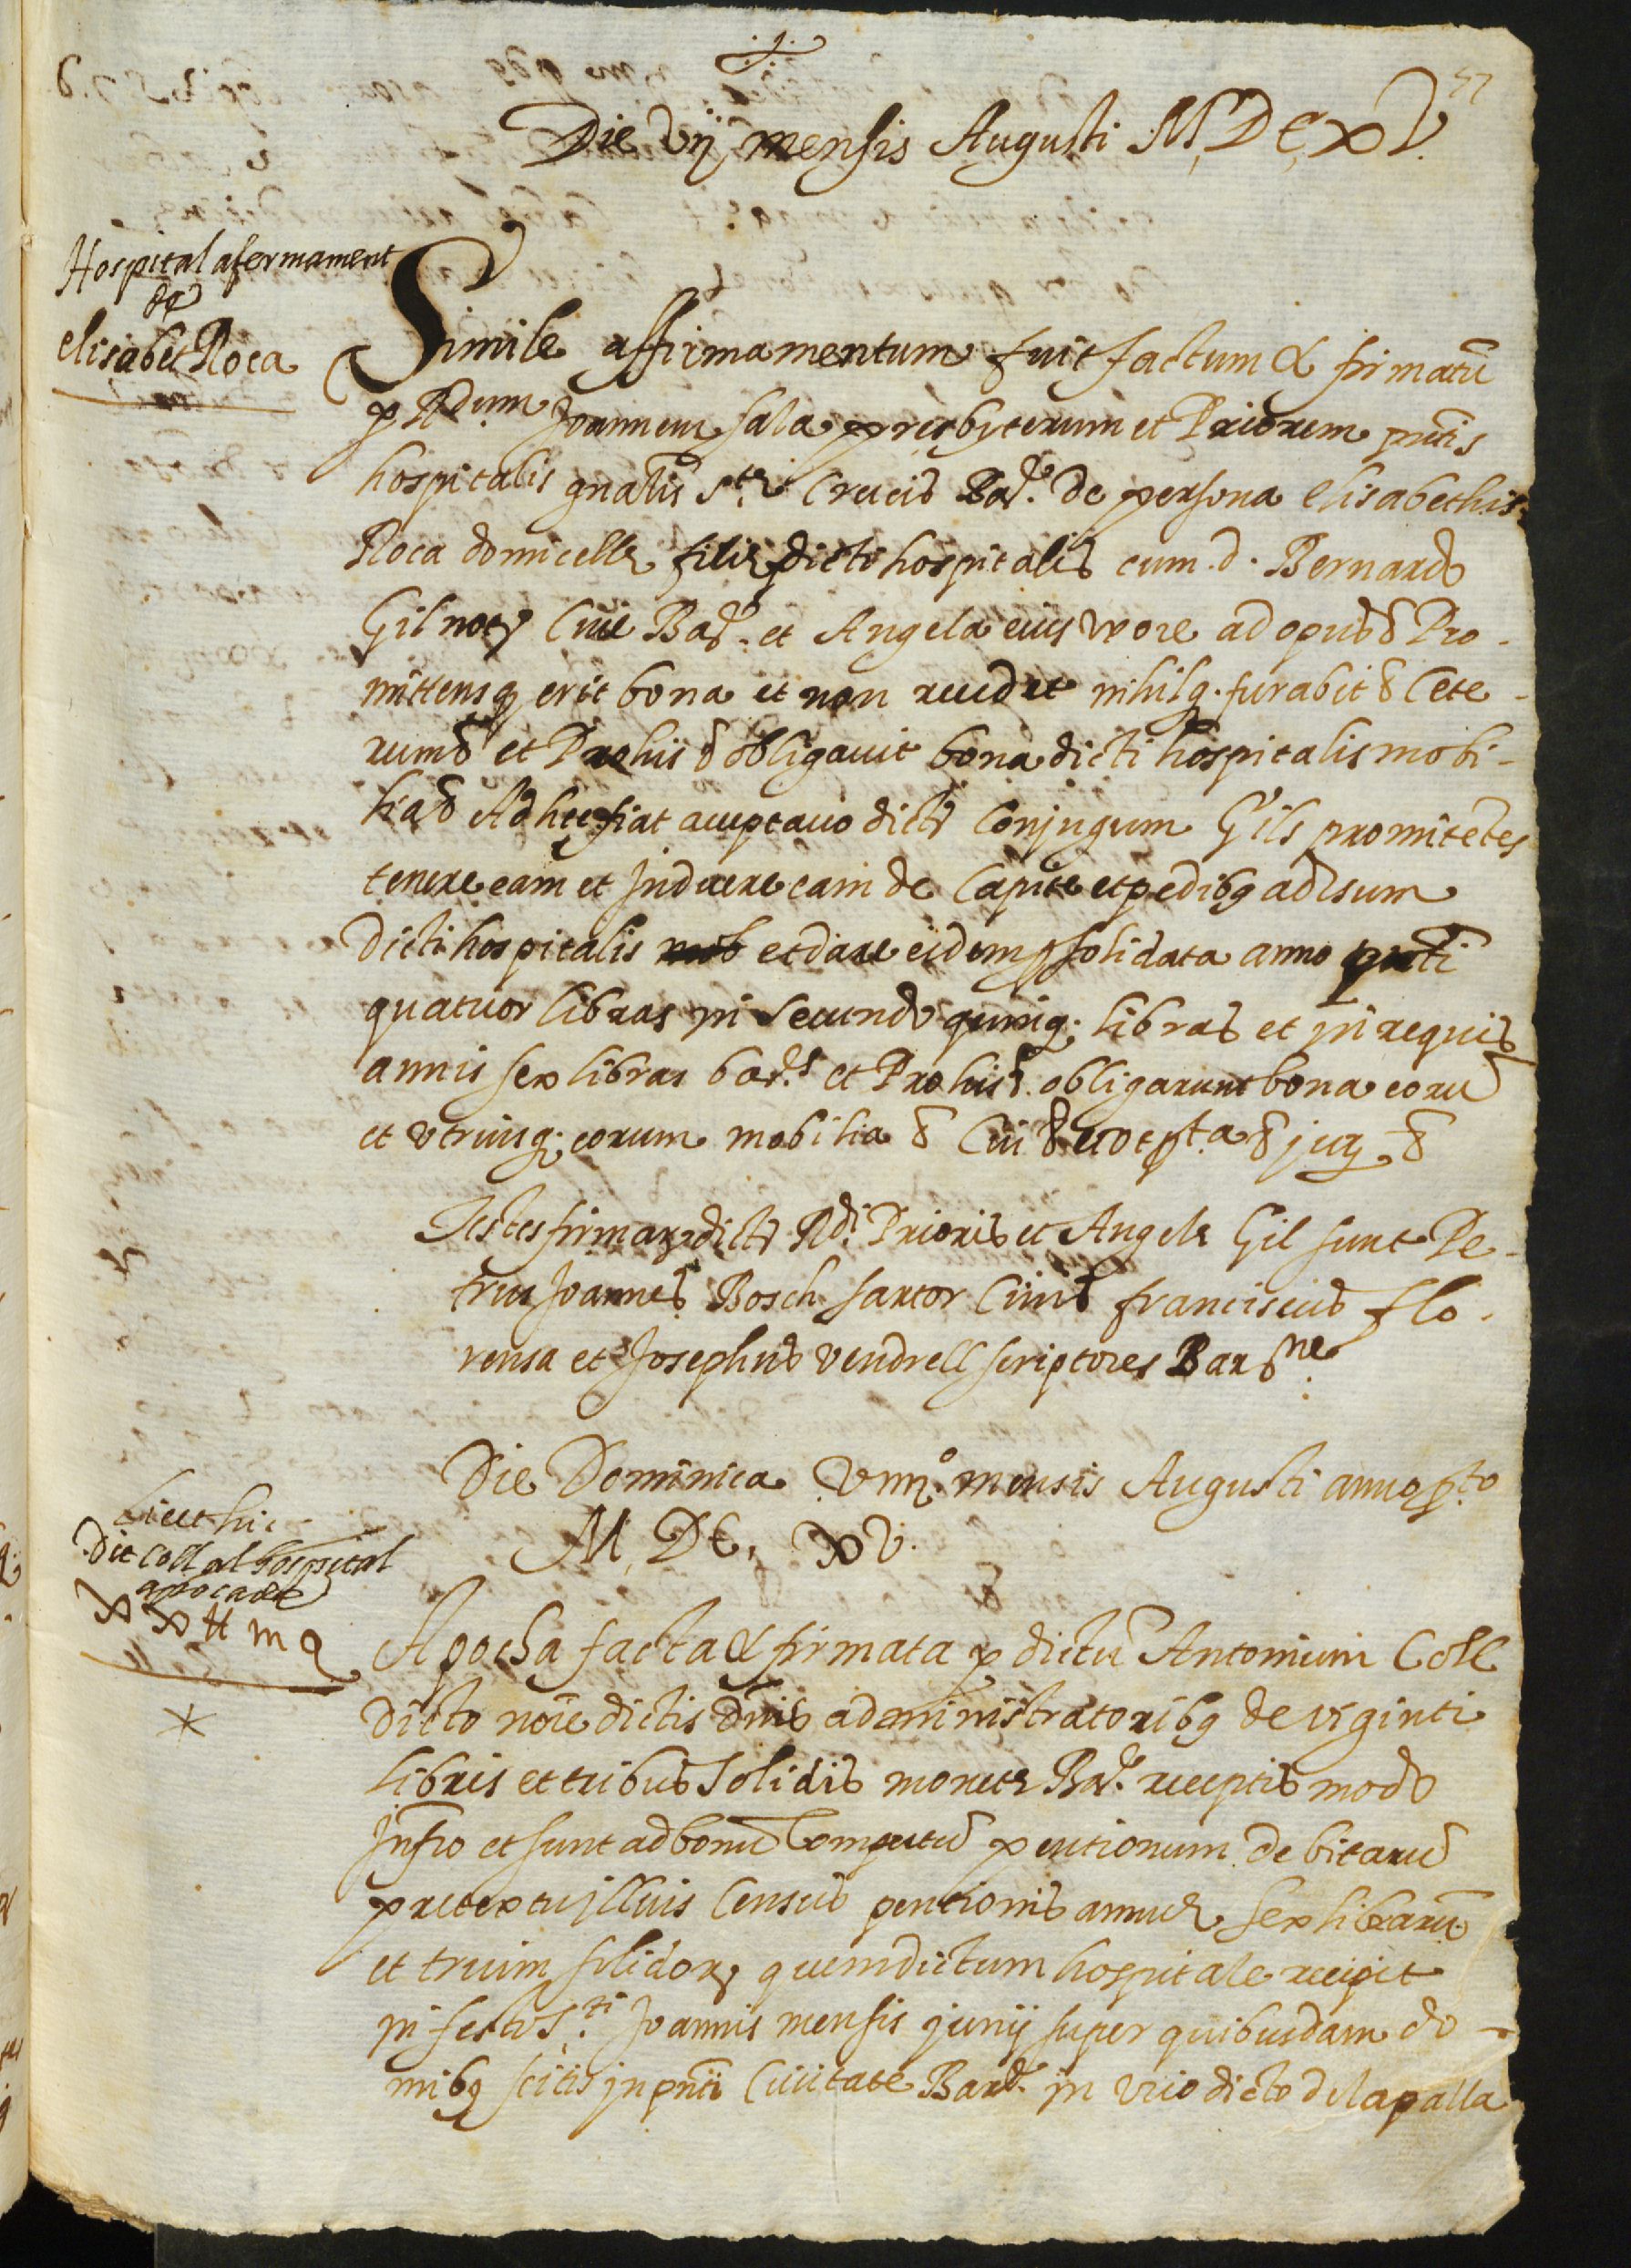 57
Die vij mensis Augusti M,DC,XV.
Hospital afermament
de
elisabet Roca
Simile affirmamentum fuit factum & firmatū
p Rdum Joannem sala presbyterum et Priorem pntis
hospitalis gnalis Ste Crucis Bar. de persona elisabethis
Roca domicelle filie dicti hospitalis cum d. Bernardo
Gil noty Cive Bar. et Angela eius uxore ad opus & Pro-
mittens q erit bona et non recedet nihilq. furabit & Cete-
rum & et Pro his & obligavit bona dicti hospitalis mobi-
lia & Ad hec fiat acceptatio dictor Conjugum Gils promitētes
tenere eam et Induere eam de Capite et pedibq ad usum
dicti hospitalis et dare eidem p solidata anno pnti
quatuor libras in secundo quinq. libras et in reliquis
annis sex libras bar.s et Pro his & obligarunt bona eorū
et utriusq. eorum mobilia & Cui & jur &
Testes firmar dictor Rdi Prioris et Angele Gil sunt Pe-
trus Joannes Bosch sartor Civis franciscus flo-
rensa et Josephus vendrell scriptores Barne.
Die Dominica Viiij.o mensis Augusti anno p.to
M, DC, XV.
Licet hic
Dit Coll al hospital
apoca de
XX tt iij s
Apocha facta & firmata p dictū Antonium Coll
dicto noīe dictis dnis administratoribq de viginti
libris et tribus solidis monete Bar. receptis modo
Infro et sunt ad bonū Computū pentionum debitarū
pretextu illius Census pentionis annue sex librarū
et trium solidor quem dictum hospitale recipit
in festo S.ti Joannis mensis junij super quibusdam do-
mibq scitis in pnti Civitate Bar. in vico dicto de la palla